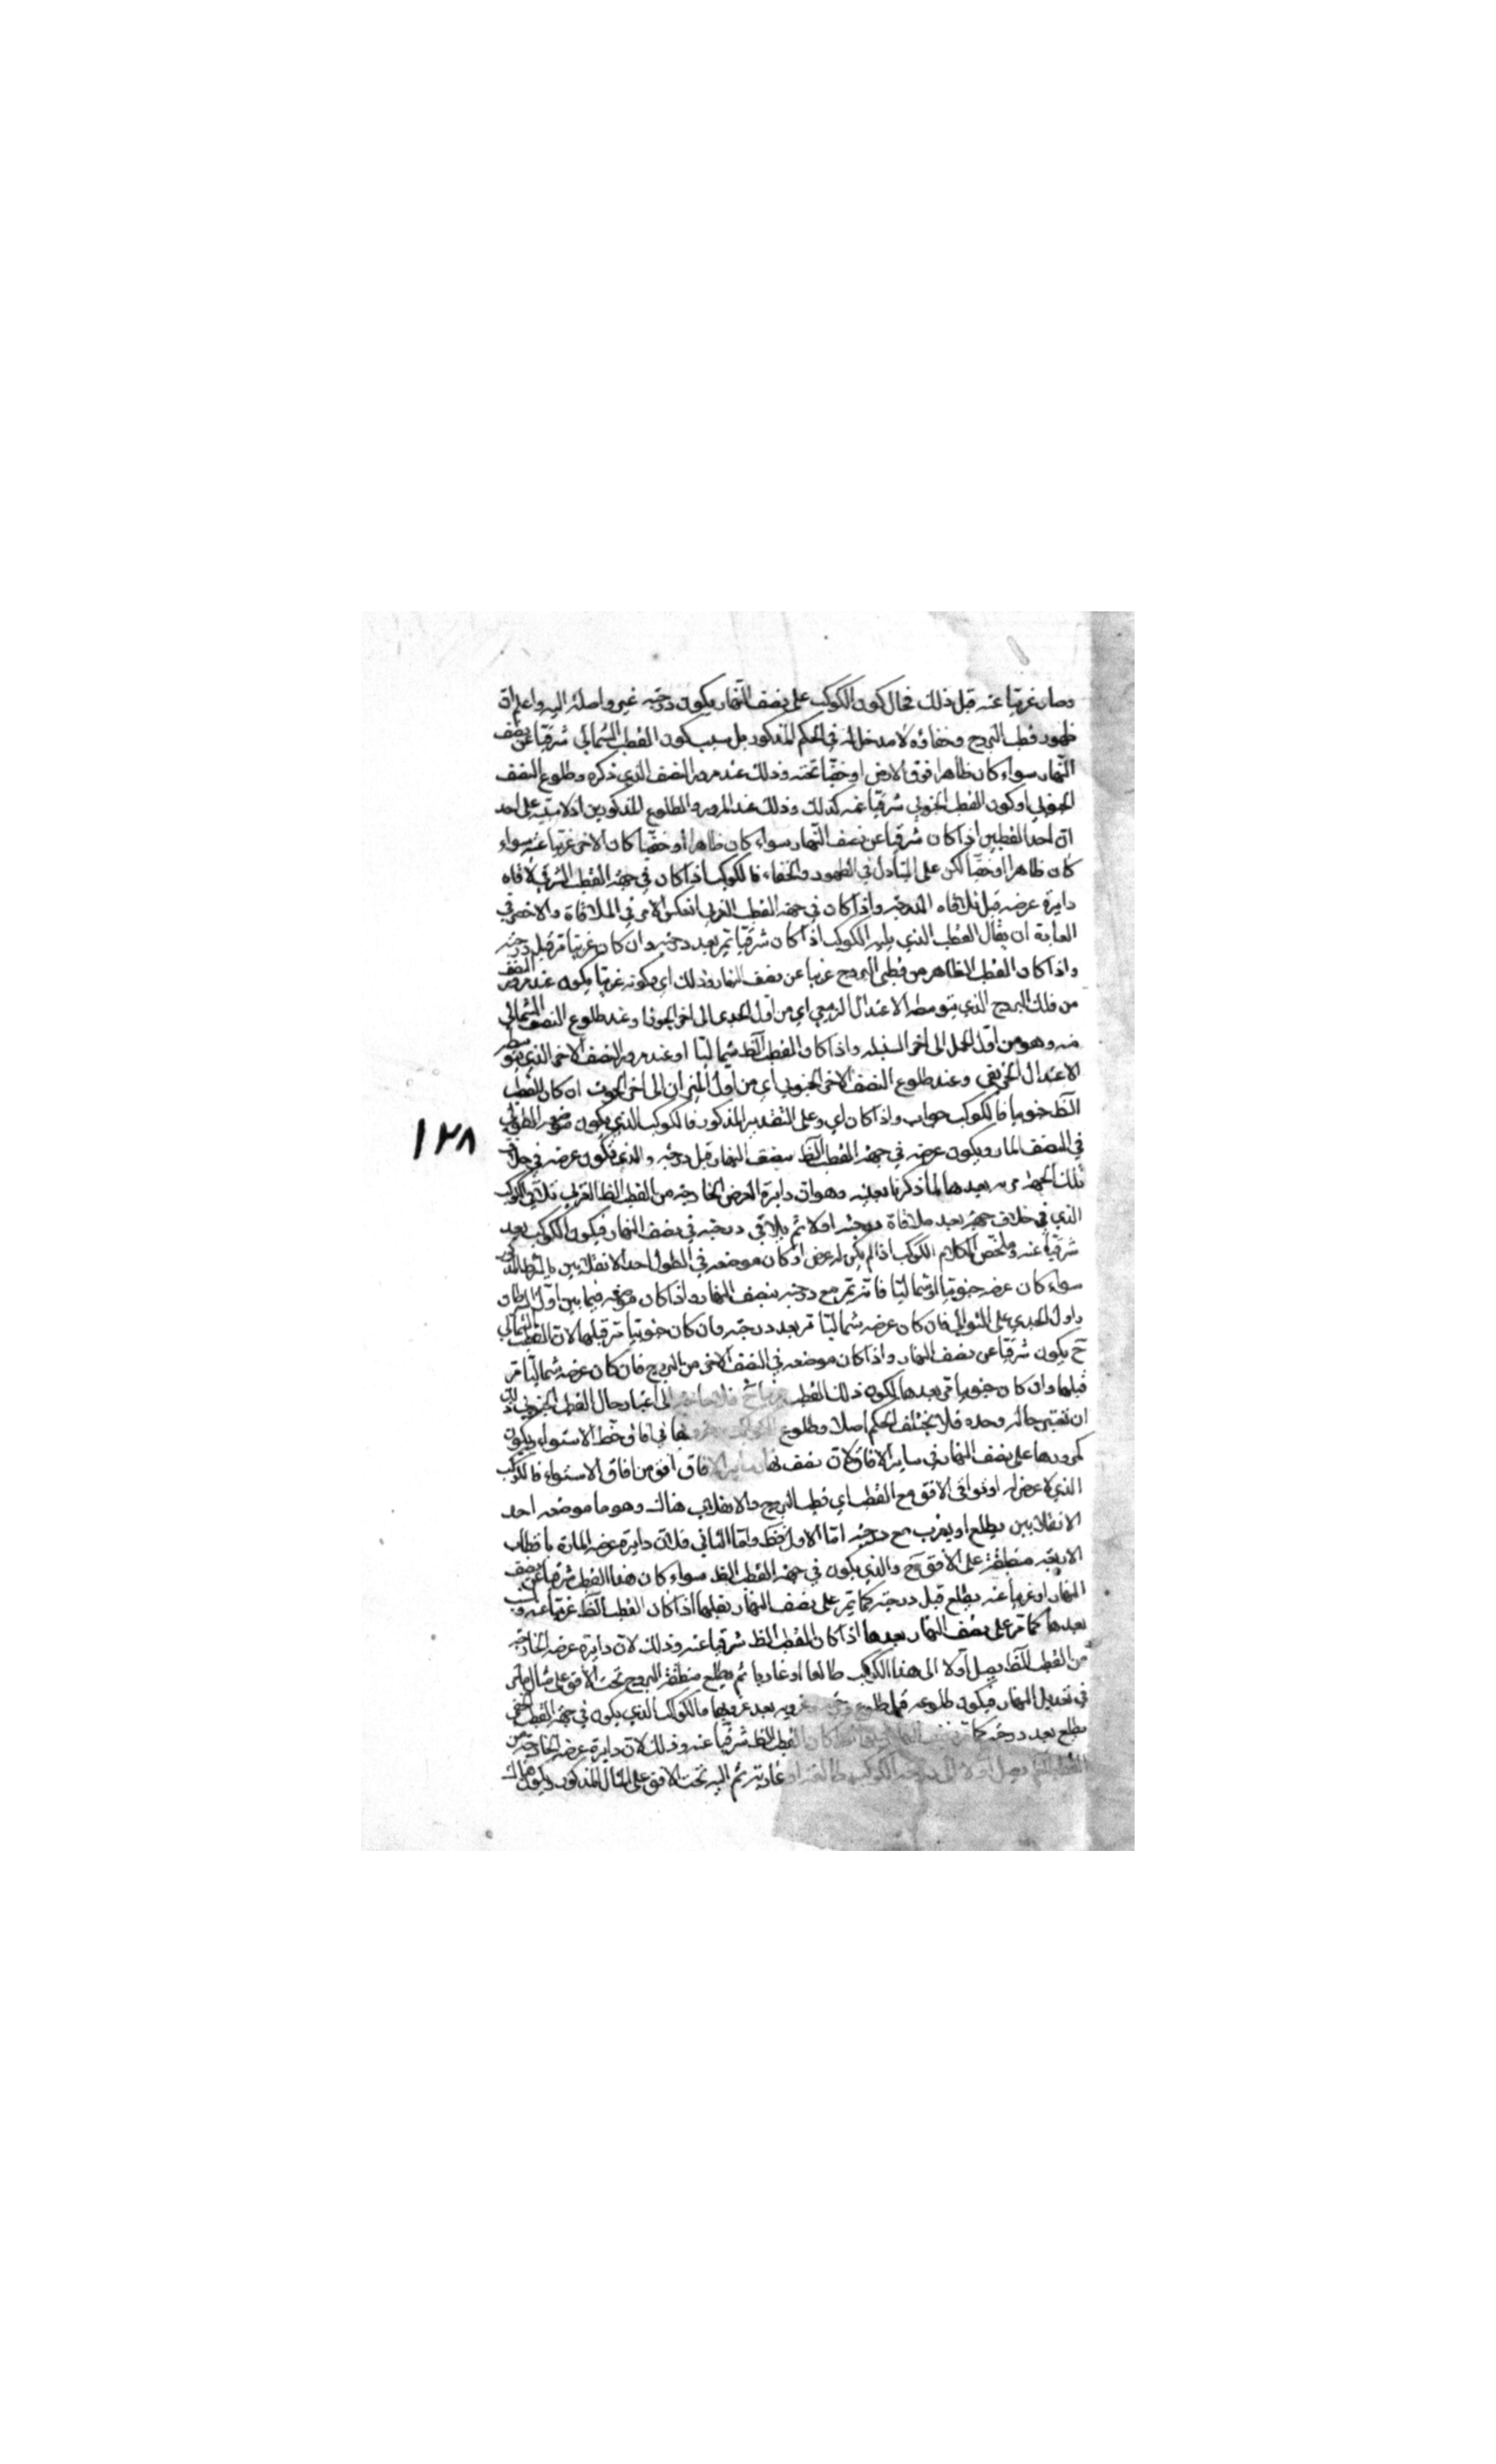 وصار غربيا عنه قبل ذلك فحال كون الكوكب على نصف النهار يكون درجته غير واصلة اليه واعلم ان
ظهور قطب البروج وخفاؤه لا مدخل له في الحكم المذكور بل سبب كون القطب الشمالي شرقيا عن نصف
النهار سواء كان ظاهرا فوق الارض او خفيا تحته وذلك عند مرور النصف الذي ذكره وطلوع النصف
الجنوبي او كون القطب الجنوبي شرقيا عنه كذلك وذلك عند المرور والطلوع المذكورين اذ لا شبهة على احد
ان احد القطبين اذا كان شرقيا عن نصف النهار سواء كان ظاهرا او خفيا كان الاخر غربيا عنه سواء
كان ظاهرا او خفيا لكن على التبادل في الظهور والخفاء فالكوكب اذا كان في جهة القطب الشرقي لاقاه
دايرة عرضه قبل ملاقاه الدرجة واذا كان في جهة القطب الغربي انعكس الامر في الملاقاة والاخصر في
العبارة ان يقال القطب الذي يلي الكوكب اذا كان شرقيا تمر بعد درجته وان كان غربيا مر قبل درجته
واذا كان القطب الظاهر من قطبي البروج غربيا عن نصف النهار وذلك اي كونه غربيا يكون عند مرور النصف
من فلك البروج الذي يتوسطه الاعتدال الربيعي اي من اول الجدي الى اخر الجوزا وعند طلوع النصف الشمالي
منه وهو من اول الحمل الى اخر السنبلة واذا كان القطب الظ شماليا او عند مرور النصف الاخر الذي يتوسطه
الاعتدال الخريفي وعند طلوع النصف الاخر الجنوبي اي من اول الميزان الى اخر الحوت ان كان القطب
الظ جنوبيا فالكوكب جواب واذا كان اي وعلى التقدير المذكور فالكوكب الذي يكون موضعه الطولي
في النصف المار ويكون عرضه في جهة القطب الظ بنصف النهار قبل درجته والذي يكون عرضه في خلاف
تلك الجهة مر به بعدها لما ذكرنا بعينه وهو ان دايرة العرض الخارجة من القطب الظ الغربي تلاقي الكوكب
الذي في خلاف جهته بعد ملاقاة درجته اولا ثم يلاقي درجته في نصف النهار فيكون الكوكب بعد
شرقيا عنه وملخص الكلام الكوكب اذا لم يكن له عرض او كان موضعه في الطول احد الانقلابين
سواء كان عرضه جنوبيا او شماليا فانه يمر مع درجته بنصف النهار واذا كان موضعه فيما بين اول السرطان
واول الجدي على التوالي فان كان عرضه شماليا مر بعد درجته وان كان جنوبيا مر قبلها لان القطب الشمالي
ح يكون شرقيا عن نصف النهار واذا كان موضعه في النصف الاخر من البروج فان كان عرضه شماليا مر
قبلها وان كان جنوبيا مر بعدها لكون ذلك القطب غربيا ح فلا حاجة الى اعتبار حال القطب الجنوبي
ان تعتبر حاله وحده فلا يختلف الحكم اصلا وطلوع الكواكب وغروبها في افاق خط الاستواء يكون
كمرورها على نصف النهار في ساير الافاق لان نصف نهار ساير الافاق افق من افاق الاستواء فالكوكب
الذي لا عرض له او توافى الافق مع القطب اي قطب البروج والانقلاب هناك وهو ما موضعه احد
الانقلابين يطلع او يغرب مع درجته اما الاول فظ واما الثاني فلان دايرة عرضه المارة باقطاب
الاربعة منطبقة على الافق ح والذي يكون في جهة القطب الظ سواء كان هذا القطب شرقيا عن نصف
النهار او غربيا عنه يطلع قبل درجته كما تمر على نصف النهار قبلها اذا كان القطب الظ غربيا عنه
بعدها كما مر على نصف النهار بعدها اذا كان القطب الظ شرقيا عنه وذلك لان دايرة عرضه الخارجة
من القطب الظ يصل اولا الى هذا الكوكب طالعا او غاربا ثم يطلع منطقة البروج تحت الافق على مثال مامر
في تعديل النهار فيكون طلوعه قبل طلوع درجته وغروبه بعد غروبها والكوكب الذي يكون في جهة القطب الخفي
يطلع بعد درجته كما مر بنصف النهار القطب الظ شرقيا عنه وذلك لان دايرة عرضه الخارجة من
القطب الظ يصل اولا الى درجة الكوكب طالعة او غاربة ثم اليه تحت الافق على المثال المذكور ويكون هناك
١٢٨